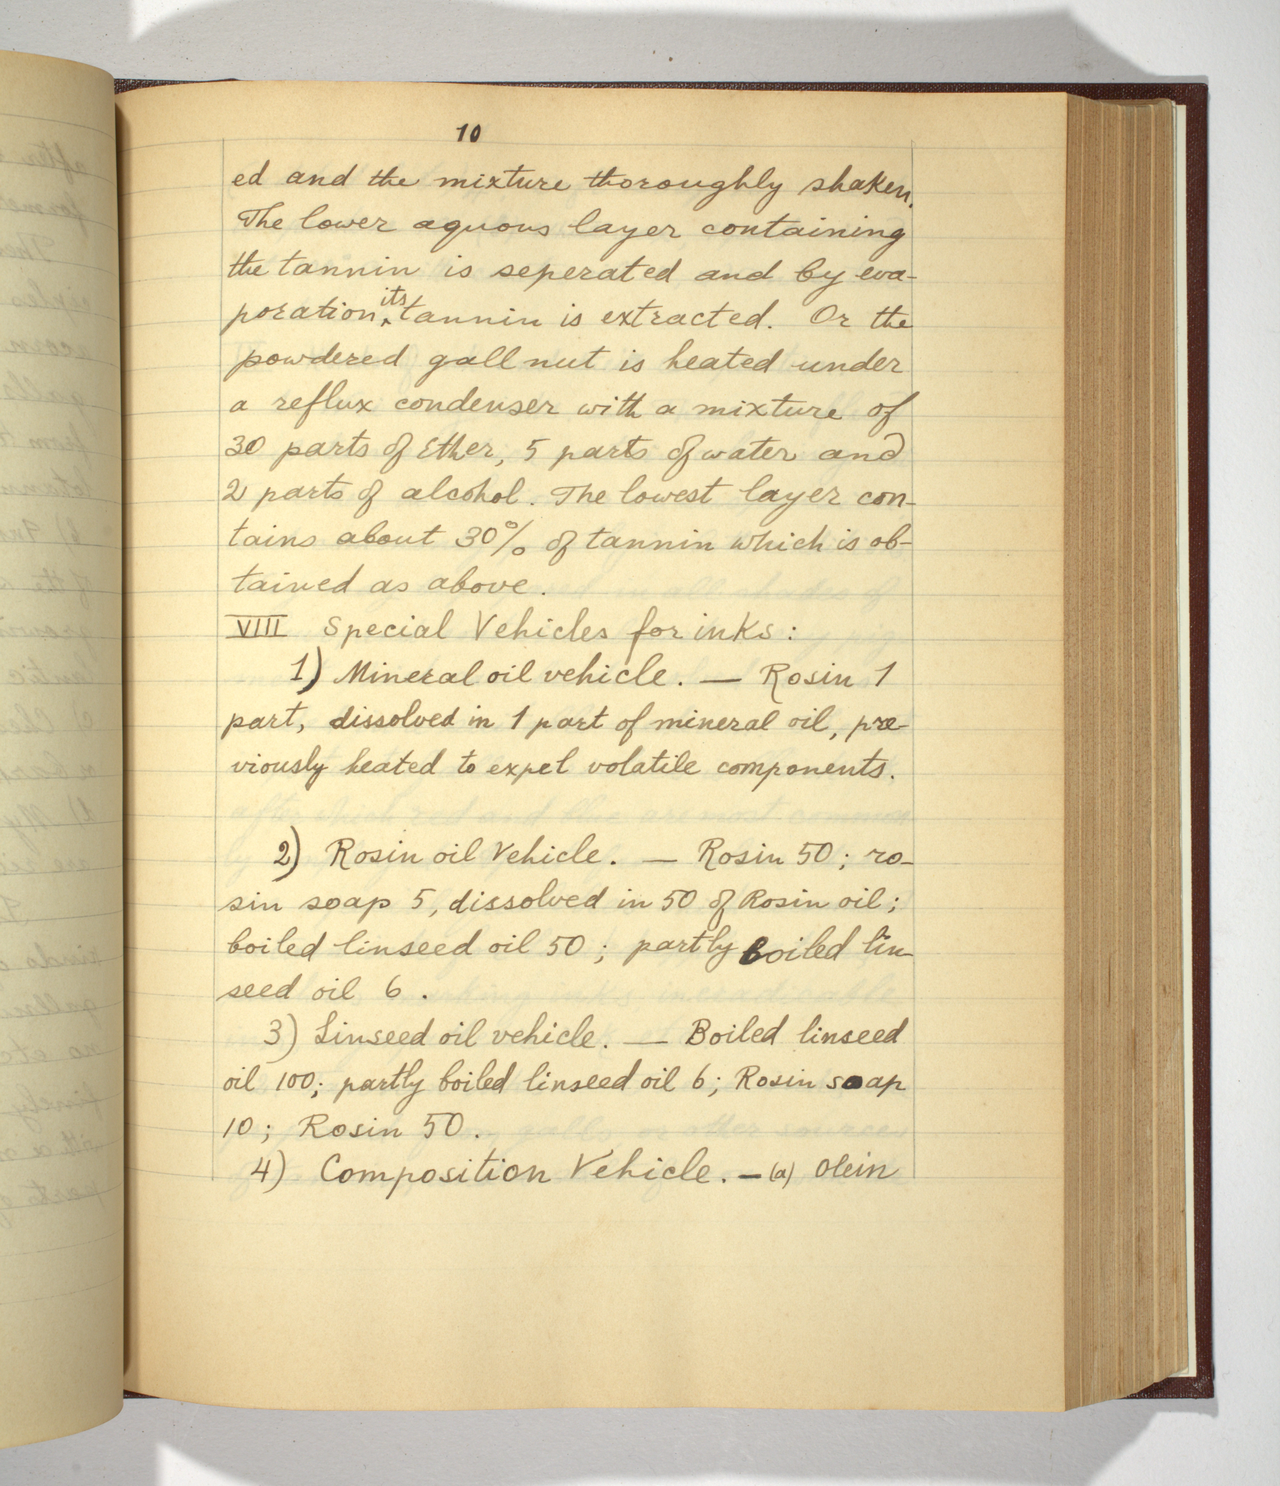 10
ed and the mixture thoroughly shaken.
The lower aquous layer containing
the tannin is seperated and by eva-
poration, its tannin is extracted. Or the
powdered gall nut is heated under
a reflux condenser with a mixture of
30 parts of Ether, 5 parts of water and
2 parts of alcohol. The lowest layer con-
tains about 30% of tannin which is ob-
tained as above.
VIII Special Vehicles for inks:
1) Mineral oil vehicle. — Rosin 1
part, dissolved in 1 part of mineral oil, pre-
viously heated to expel volatile components.
2) Rosin oil Vehicle. — Rosin 50; ro-
sin soap 5, dissolved in 50 of Rosin oil;
boiled linseed oil 50; partly boiled lin-
seed oil 6.
3) Linseed oil vehicle. — Boiled linseed
oil 100; partly boiled linseed oil 6; Rosin soap
10; Rosin 50.
4) Composition Vehicle. — (a) Olein